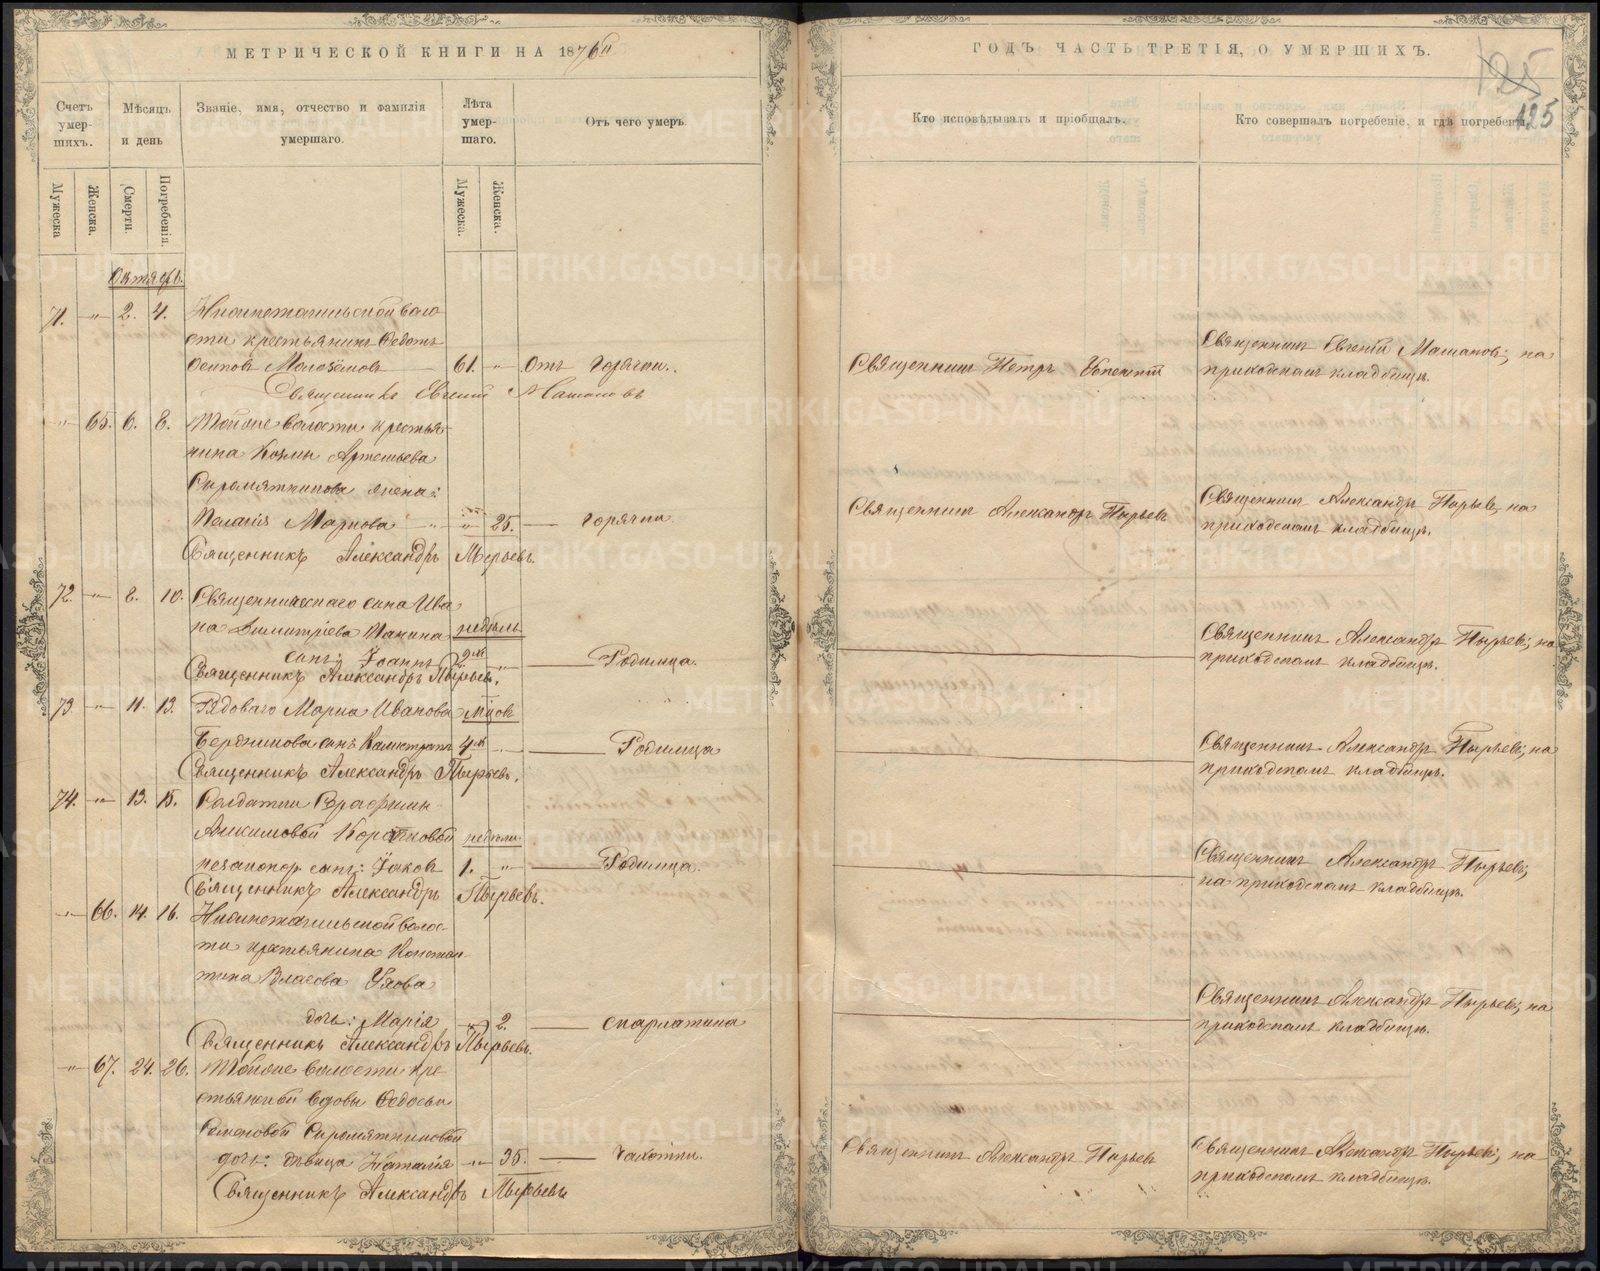 МЕТРИЧЕСКОЙ КНИГИ НА 1876й
Счетъ умер-шихъ.
Мѣсяцъ и день
Званіе, имя, отчество и фамилія умершаго.
Лѣта умер-шаго.
Отъ чего умеръ
Мужеска
Женска.
Смерти.
Погребенія.
Мужеска.
Женска.
Октябрь.
71. -"- 2. 4. Нижнетагильской воло
сти крестьянинъ Федотъ
Осиповъ 61. -"- Отъ горячки.
Священникъ Евгеній
-"- 65. 6. 8. Той же волости крестья
нина Козмы Артемьева
Сыромятникова жена:
Пелагія Маркова -"- 25. горячки.
Священникъ Александръ Пырьевъ.
72. -"- 8. 10. Священническаго сына Ива
на Димитріева недѣль
сынъ: Іоаннъ 2хъ -"- Родимца.
Священникъ Александръ Пырьевъ.
73. -"- 11. 13. Рядоваго Марка Иванова мѣсяцовъ
Бердникова сынъ Калистратъ 4хъ -"- Родимца
Священникъ Александръ Пырьевъ.
74. -"- 13. 15. Солдатки
Акимовой недѣли.
незаконор. сынъ: Іаковъ 1. -"- Родимца.
Священникъ Александръ Пырьевъ.
-"- 66. 14. 16. Нижнетагильской волос-
ти крестьянина Констан
тина Власова Ухова
дочь: Марія -"- 2. скарлатина
Священникъ Александръ Пырьевъ.
-"- 67. 24. 26. Той же волости кре
стьянской вдовы Федосьи
Семеновой Сыромятниковой
дочь: дѣвица Наталія -"- 35. чахотки.
Священникъ Александръ Пырьевъ
ГОДЪ ЧАСТЬ ТРЕТІЯ, О УМЕРШИХЪ.
125
125
Кто исповѣдывалъ и пріобщалъ.
Кто совершалъ погребеніе, и гдѣ погребены.
Священникъ Петръ Успенскій
Священникъ Евгеній на
приходскомъ кладбищѣ.
Священникъ Александръ Пырьевъ
Священникъ Александръ Пырьевъ, на
приходскомъ кладбищѣ.
Священникъ Александръ Пырьевъ; на
приходскомъ кладбищѣ.
Священникъ Александръ Пырьевъ; на
приходскомъ кладбищѣ.
Священникъ Александръ Пырьевъ;
на приходскомъ кладбищѣ.
Священникъ Александръ Пырьевъ; на
приходскомъ кладбищѣ.
Священникъ Александръ Пырьевъ
Священникъ Александръ Пырьевъ; на
приходскомъ кладбищѣ.
METRIKI.GASO-URAL.RU